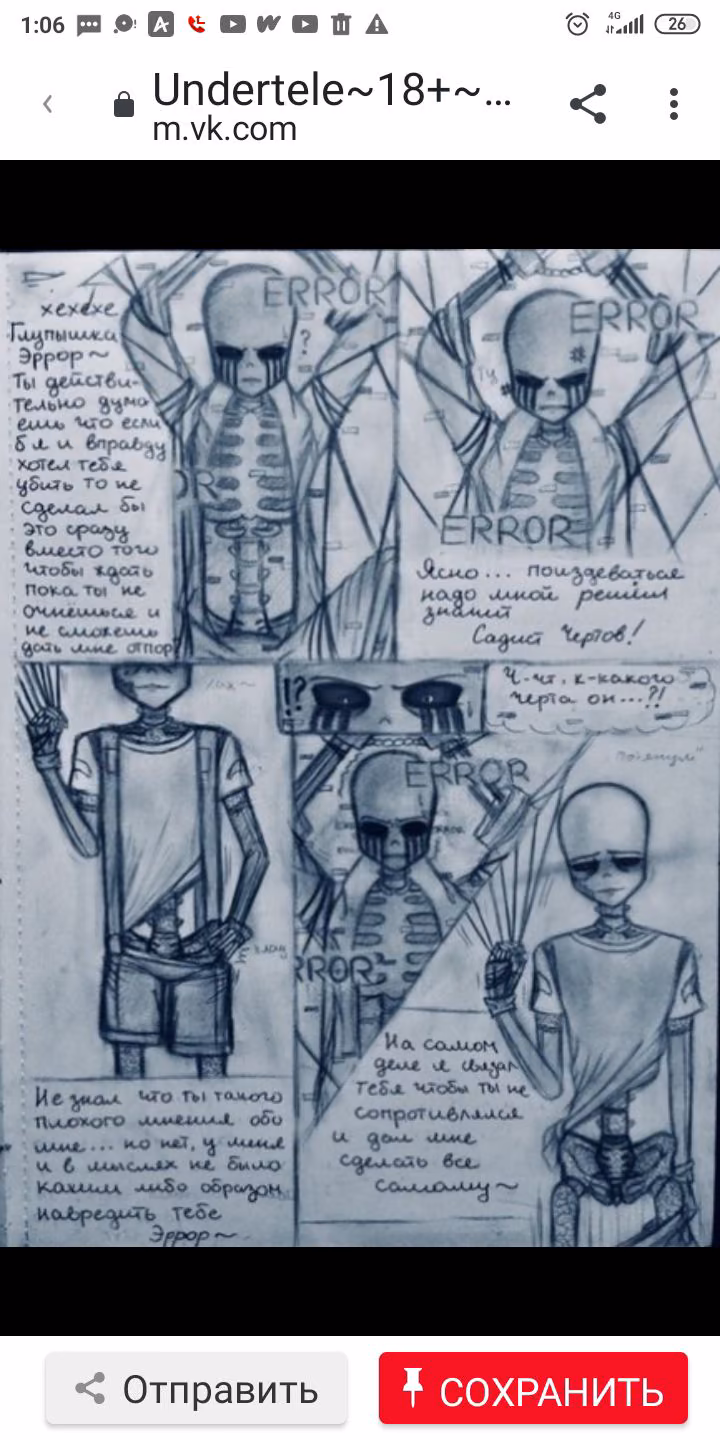 1:06
4G
26
Undertele~18+~...
m.vk.com
хехехе
Глупышка
Эррор~
Ты действи-
тельно дума
ешь что если
б я и вправду
хотел тебя
убить то не
сделал бы
это сразу
вместо того
чтобы ждать
пока ты не
очнёшься и
не сможешь
дать мне отпор?
ERROR
?
OR
ERROR
ERROR
Ясно... поиздеваться
надо мной решил
значит
Садист чертов!
!?
Ч-чт, к-какого
черта он...?!
ERROR
RROR
Не знал что ты такого
плохого мнения обо
мне... но нет, у меня
и в мыслях не было
каким либо образом
навредить тебе
Эррор~
На самом
деле я связал
тебя чтобы ты не
сопротивлялся
и дал мне
сделать все
самому~
Отправить
СОХРАНИТЬ